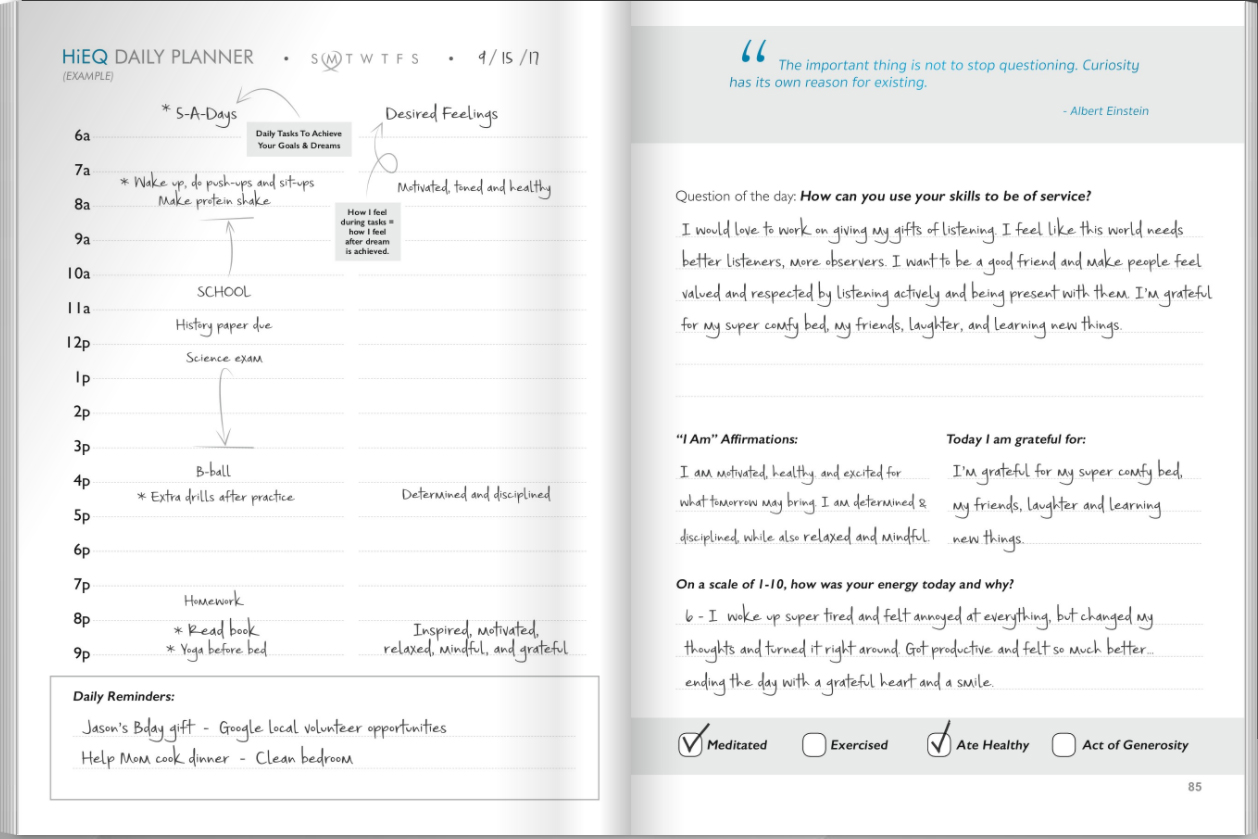 HiEQ DAILY PLANNER • S M T W T F S • 9/15/17
(EXAMPLE)
* 5-A-Days
Desired Feelings
Daily Tasks To Achieve
Your Goals & Dreams
6a
7a
* Wake up, do push-ups and sit-ups
Motivated, toned and healthy
Make protein shake
8a
How I feel
during tasks =
how I feel
after dream
is achieved.
9a
10a
SCHOOL
11a
History paper due
12p
Science exam
1p
2p
3p
B-ball
4p
* Extra drills after practice
Determined and disciplined
5p
6p
7p
Homework
8p
* Read book
Inspired, motivated,
* Yoga before bed
relaxed, mindful, and grateful
9p
Daily Reminders:
Jason's Bday gift - Google local volunteer opportunities
Help Mom cook dinner - Clean bedroom
“ The important thing is not to stop questioning. Curiosity
has its own reason for existing.
- Albert Einstein
Question of the day: How can you use your skills to be of service?
I would love to work on giving my gifts of listening. I feel like this world needs
better listeners, more observers. I want to be a good friend and make people feel
valued and respected by listening actively and being present with them. I'm grateful
for my super comfy bed, my friends, laughter, and learning new things.
“I Am” Affirmations:
I am motivated, healthy, and excited for
what tomorrow may bring. I am determined &
disciplined, while also relaxed and mindful.
Today I am grateful for:
I'm grateful for my super comfy bed,
my friends, laughter and learning
new things.
On a scale of 1-10, how was your energy today and why?
6 - I woke up super tired and felt annoyed at everything, but changed my
thoughts and turned it right around. Got productive and felt so much better...
ending the day with a grateful heart and a smile.
Meditated
Exercised
Ate Healthy
Act of Generosity
85